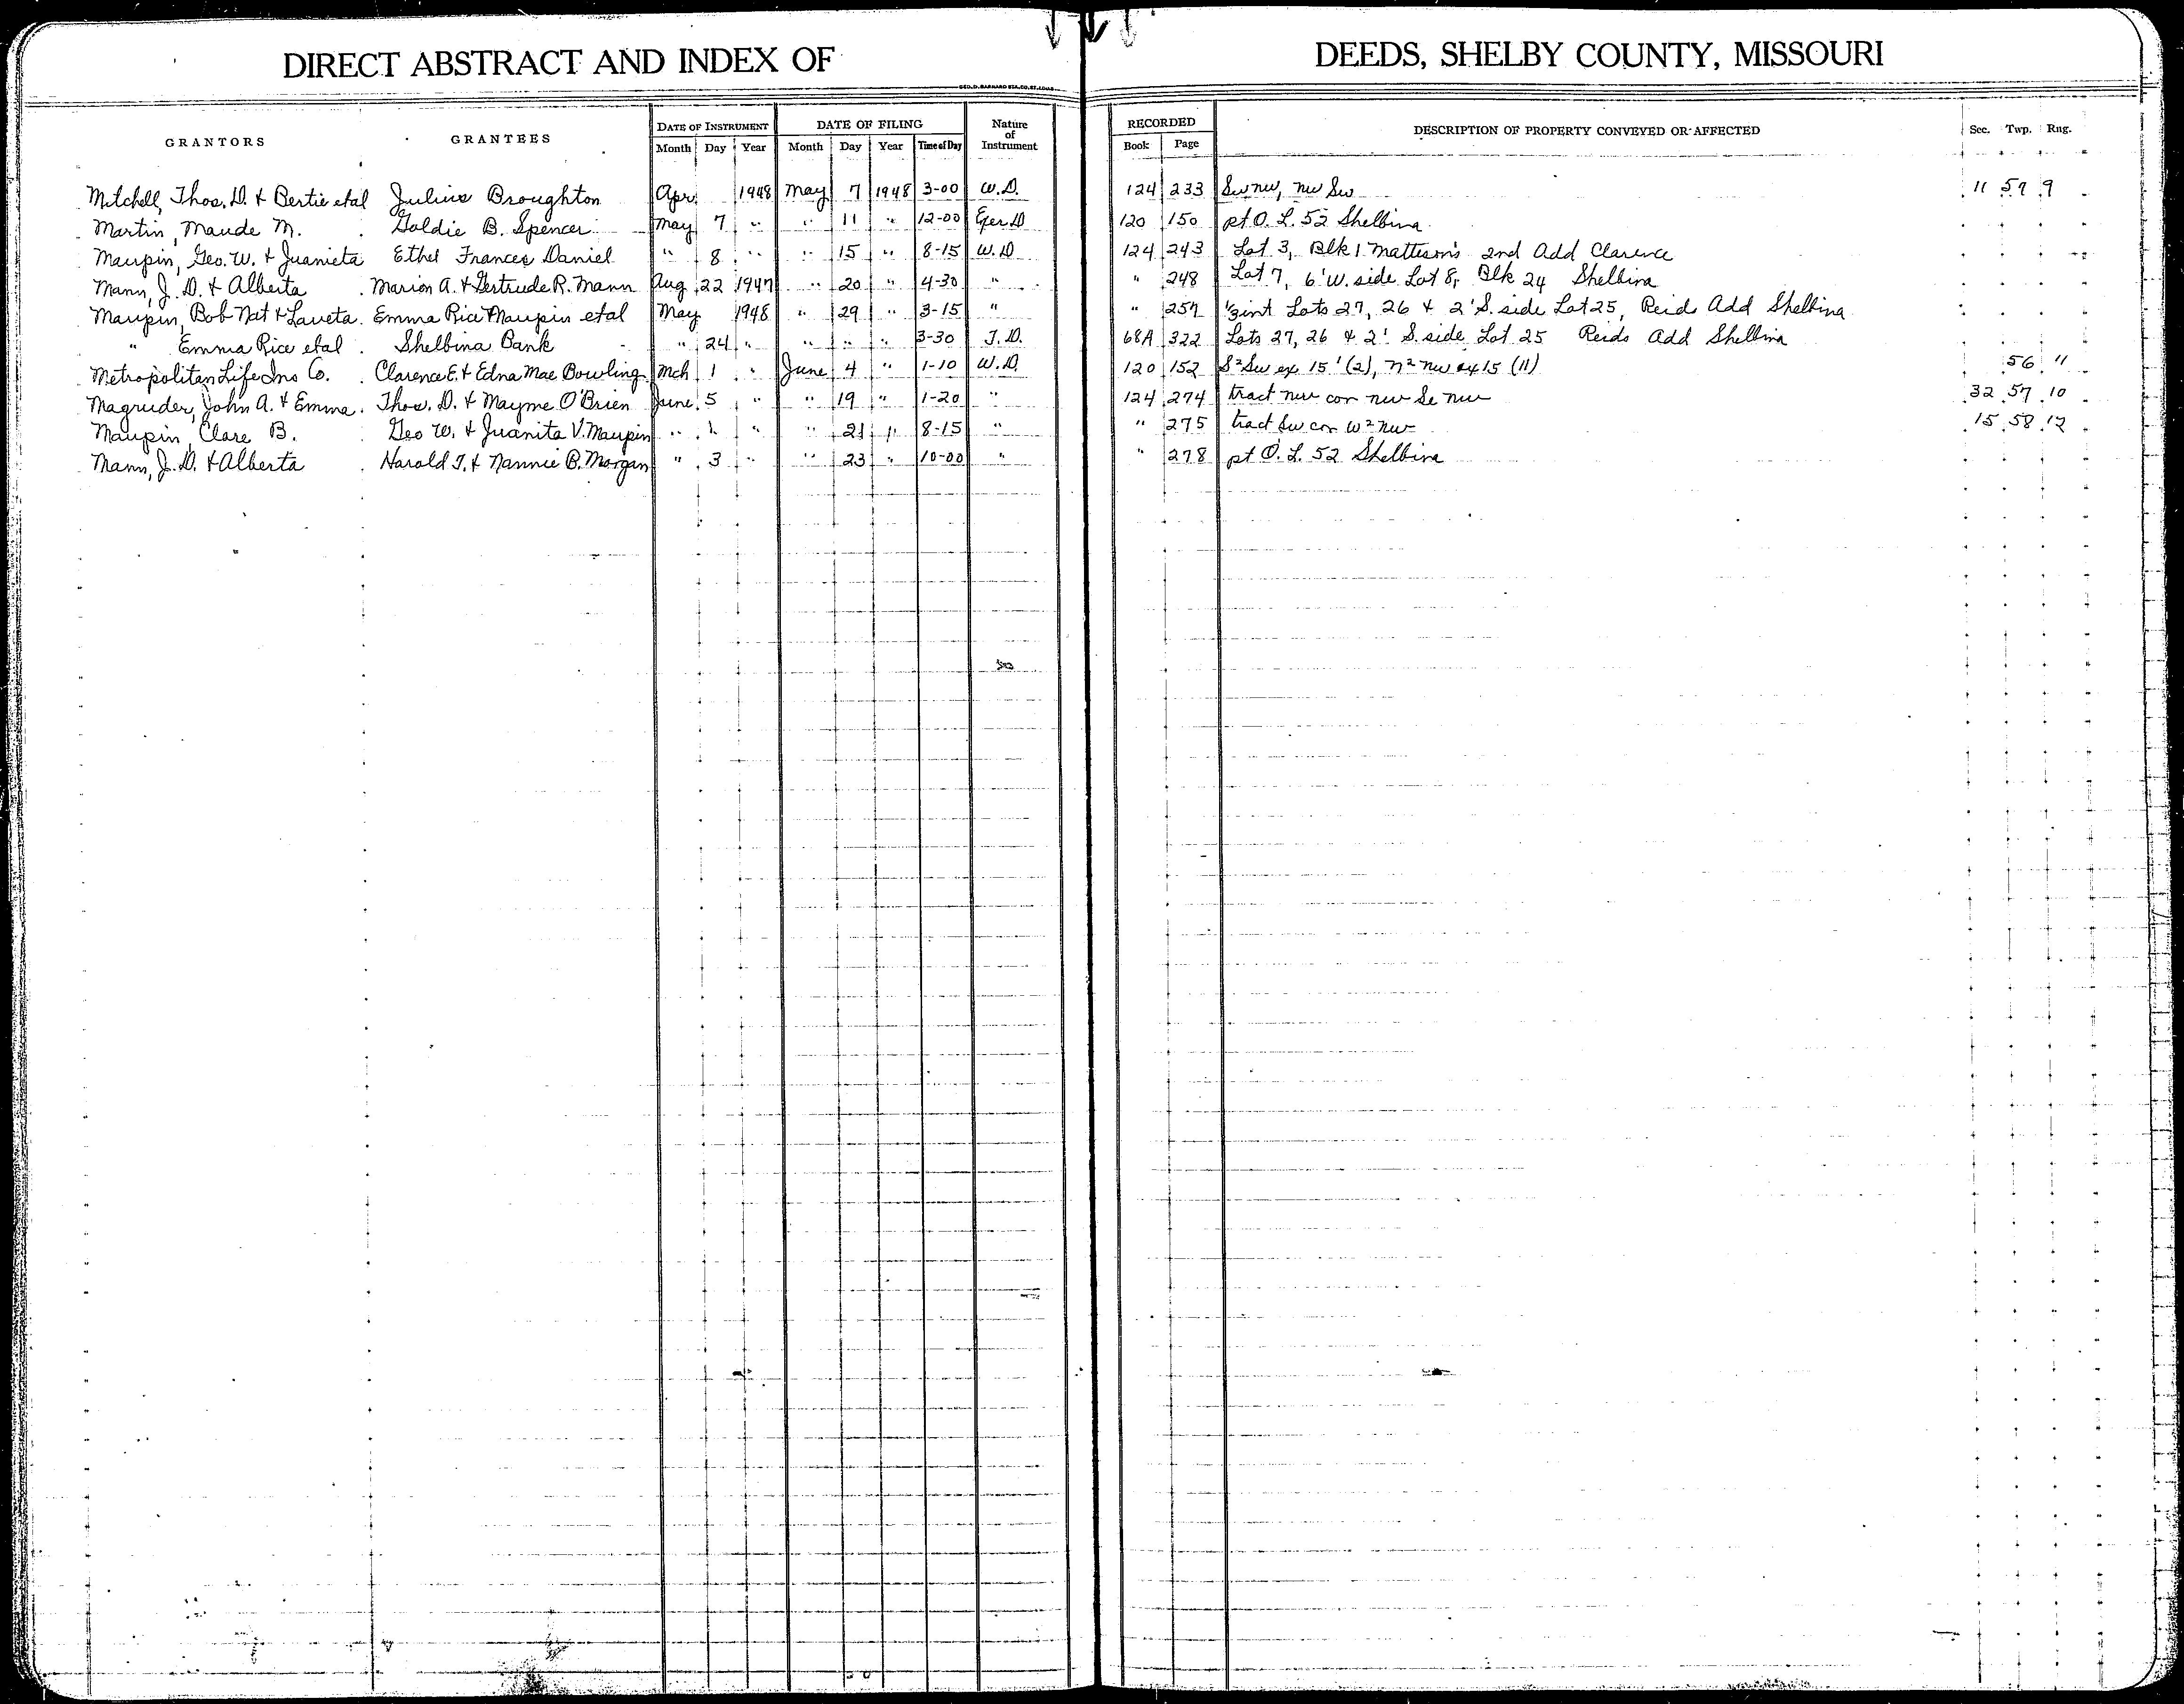 DIRECT ABSTRACT AND INDEX OF DEEDS, SHELBY COUNTY, MISSOURI
GRANTORS GRANTEES DATE OF INSTRUMENT DATE OF FILING Nature of Instrument RECORDED DESCRIPTION OF PROPERTY CONVEYED OR AFFECTED Sec. Twp. Rng.
Month Day Year Month Day Year Time of Day Book Page
Mitchell, Thos. D. & Bertie etal Julius Broughton Apr 1948 May 7 1948 3-00 W.D. 124 233 Sw nw, nw Sw 11 57 9
Martin, Maude M. Goldie B. Spencer May 7 " " 11 " 12-00 Exer D 120 150 pt O. L. 52 Shelbina
Maupin, Geo. W. & Juanieta Ethel Frances Daniel " 8 " " 15 " 8-15 W.D 124 243 Lot 3, Blk 1 Mattison's 2nd Add Clarence
Mann, J. D. & Alberta Marion A. & Gertrude R. Mann Aug 22 1947 " 20 " 4-30 " " 248 Lot 7, 6' W. side Lot 8, Blk 24 Shelbina
Maupin, Bob Nat & Laveta Emma Rice Maupin etal May 1948 " 29 " 3-15 " " 257 1/3 int Lots 27, 26 & 2' S. side Lot 25, Reid Add Shelbina
" Emma Rice etal Shelbina Bank " 24 " " " " 3-30 T.D. 68A 322 Lots 27, 26 & 2' S. side Lot 25 Reids Add Shelbina
Metropolitan Life Ins Co. Clarence E. & Edna Mae Bowling Mch 1 " June 4 " 1-10 W.D. 120 152 S² Sw ex 15' (2), N² Nw ex 15 (11) 56 11
Magruder, John A. & Emma Thos. D. & Mayme O'Brien June 5 " " 19 " 1-20 " 124 274 tract nw cor nw Se nw 32 57 10
Maupin, Clare B. Geo W. & Juanita V. Maupin " 1 " " 21 " 8-15 " " 275 tract Sw cor W² nw 15 58 12
Mann, J. D. & Alberta Harold T. & Nannie B. Morgan " 3 " " 23 " 10-00 " " 278 pt O. L. 52 Shelbina